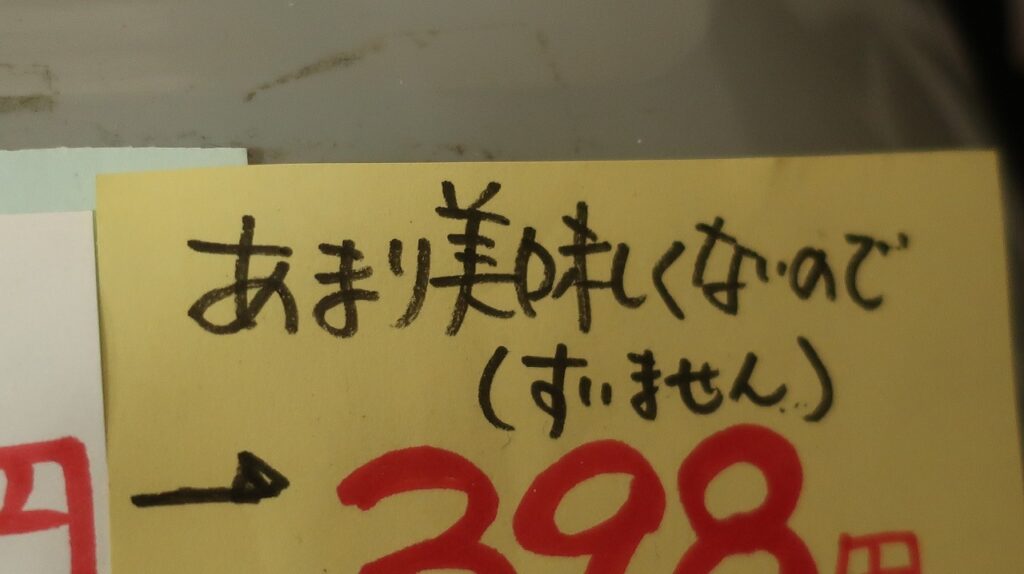 あまり美味しくないので
(すいません..)
→
398円